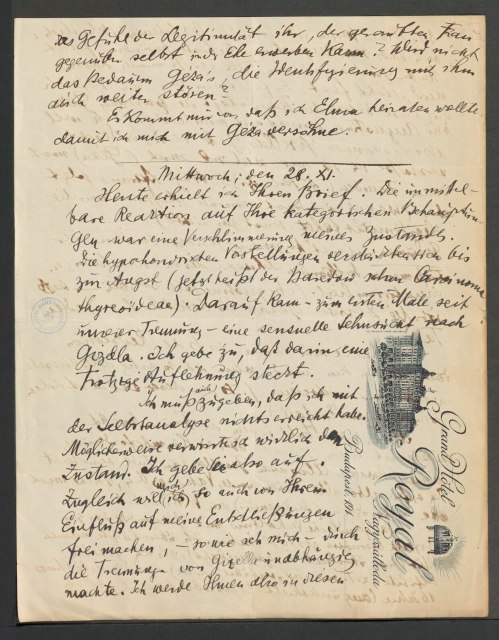 das Gefühl der Legitimität ihr, der geraubten Frau
gegenüber selbst in der Ehe erwerben kann? Wird nicht
das Bedauern Géza's, die Identifizierung mit ihm
dich weiter stören?
Es kommt mir vor, daß ich Elma heiraten wollte,
damit ich mich mit Géza versöhne.
Mittwoch, den 28. XI.
Heute erhielt ich Ihren Brief. Die unmittel-
bare Reaktion auf Ihre kategorischen Behauptun-
gen war eine Verschlimmerung meines Zustands.
Die hypochondrischen Vorstellungen verstärkten sich bis
zur Angst (jetzt heißt der Basedow schon Carcinoma
thyreoideae). Darauf kam – zum ersten Male seit
unserer Trennung – eine sensuelle Sehnsucht nach
Gizella. Ich gebe zu, daß darin eine
trotzige Auflehnung steckt.
Ich muß auch zugeben, daß ich mit
der Selbstanalyse nichts erreicht habe.
Möglicherweise verwirrte ich wirklich den
Zustand. Ich gebe sie also auf.
Zugleich will ich mich so auch von Ihrem
Einfluß auf meine Entschließungen
frei machen, – so wie ich mich – durch
die Trennung – von Gizella unabhängig
machte. Ich werde Ihnen also in diesen
Grand Hôtel
Royal
Nagyszálloda
Budapest, 191